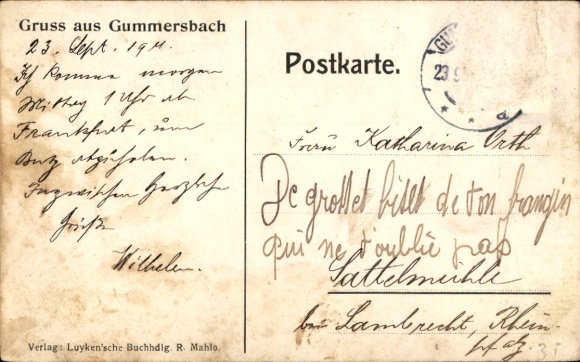 Gruss aus Gummersbach
23. Sept. 1911.
Ich komme morgen
Mittag 1 Uhr ab
Frankfurt, um
abzuholen.
Inzwischen herzliche
Grüße
Wilhelm.
Verlag: Luyken'sche Buchhdlg. R. Mahlo.
Postkarte.
GU
23.9
* * a
Frau Katharina Orth
De grosset biset de ton frangin
qui ne t'oublie pas
Sattelmühle
bei Lambrecht, Rhein-
pfalz.